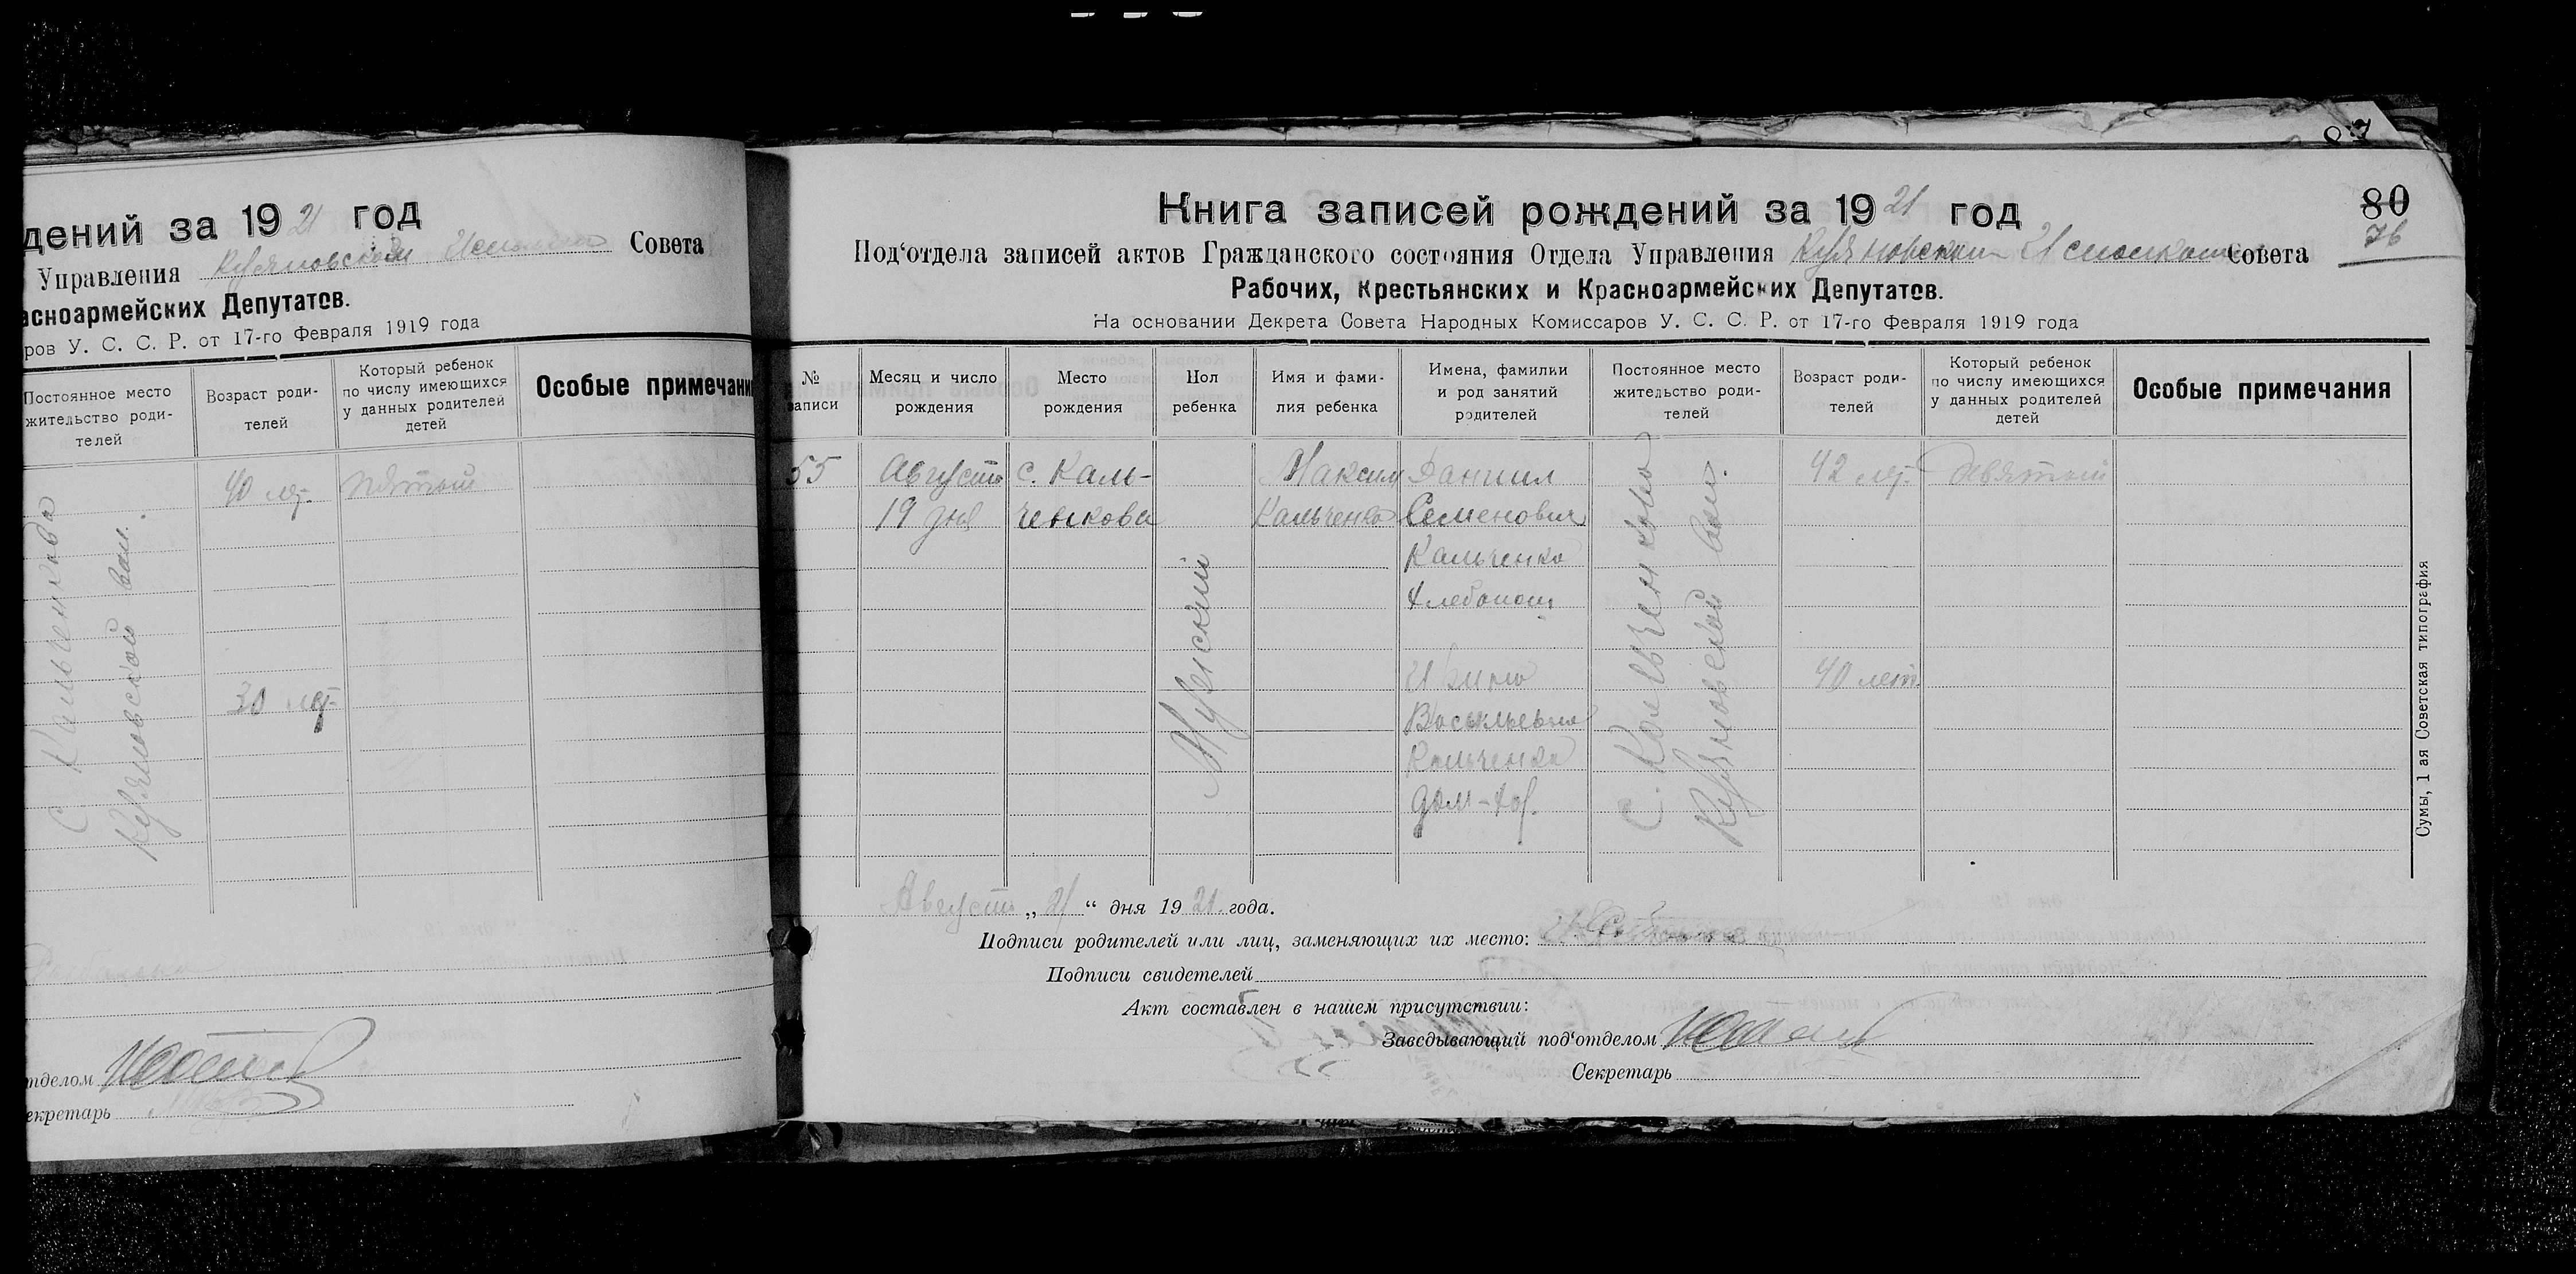 дений за 19 21 год
Управления Совета
асноармейских Депутатов.
ров У. С. С. Р. от 17-го Февраля 1919 года
Постоянное место
жительство роди-
телей
Возраст роди-
телей
Который ребенок
по числу имеющихся
у данных родителей
детей
Особые примечани
С Кальченкова
вол.
40 лет.
пятый
30 лет.
тделом
екретарь
87
80
76
Книга записей рождений за 19 21 год
Под‘отдела записей актов Гражданского состояния Отдела Управления Исполкома Совета
Рабочих, Крестьянских и Красноармейских Депутатов.
На основании Декрета Совета Народных Комиссаров У. С. С. Р. от 17-го Февраля 1919 года
№
записи
Месяц и число
рождения
Место
рождения
Пол
ребенка
Имя и фами-
лия ребенка
Имена, фамилии
и род занятий
родителей
Постоянное место
жительство роди-
телей
Возраст роди-
телей
Который ребенок
по числу имеющихся
у данных родителей
детей
Особые примечания
55
Августа
19 дня
с. Каль-
ченкова
Мужский
Максим
Кальченко
Даниил
Семенович
Кальченко
Хлебопаш
Васильевна
Кальченко
дом-хоз.
С. Кальченкова
вол.
42 лет.
40 лет.
девятый
Августа „ 21 “ дня 19 21 года.
Подписи родителей или лиц, заменяющих их место:
Подписи свидетелей
Акт составлен в нашем присутствии:
Заведывающий под‘отделом
Секретарь
Сумы, 1 ая Советская типография